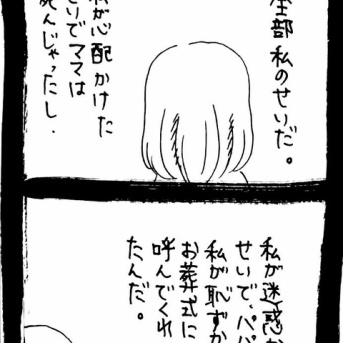 全部私のせいだ。
私が心配かけた
せいでママは
死んじゃったし.
私が迷惑か
せいで、パパ
私が恥ずか
お葬式に
呼んでくれ
たんだ。